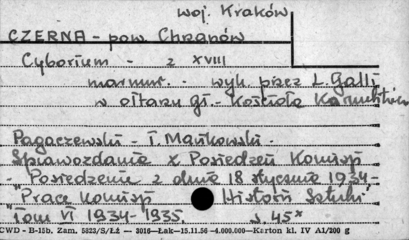 woj. Kraków
CZERNA - pow. Chrzanów
Cyborium - z XVIII
marmur. - wyk. przez L. Galli
w ołtarzu gł. - Kościoła Karmelitów
Pagaczewski - T. Mańkowski -
Sprawozdania z Posiedzeń Komisji
- Posiedzenie z dnia 18 stycznia 1934 -
"Prace Komisji Historii Sztuki"
"Tom VI 1934-1935 s. 45*
CWD - B-15b. Zam. 5823/S/ŁŻ — 3016—Łak—15.11.56 —4.000.000—Karton kl. IV A1/200 g